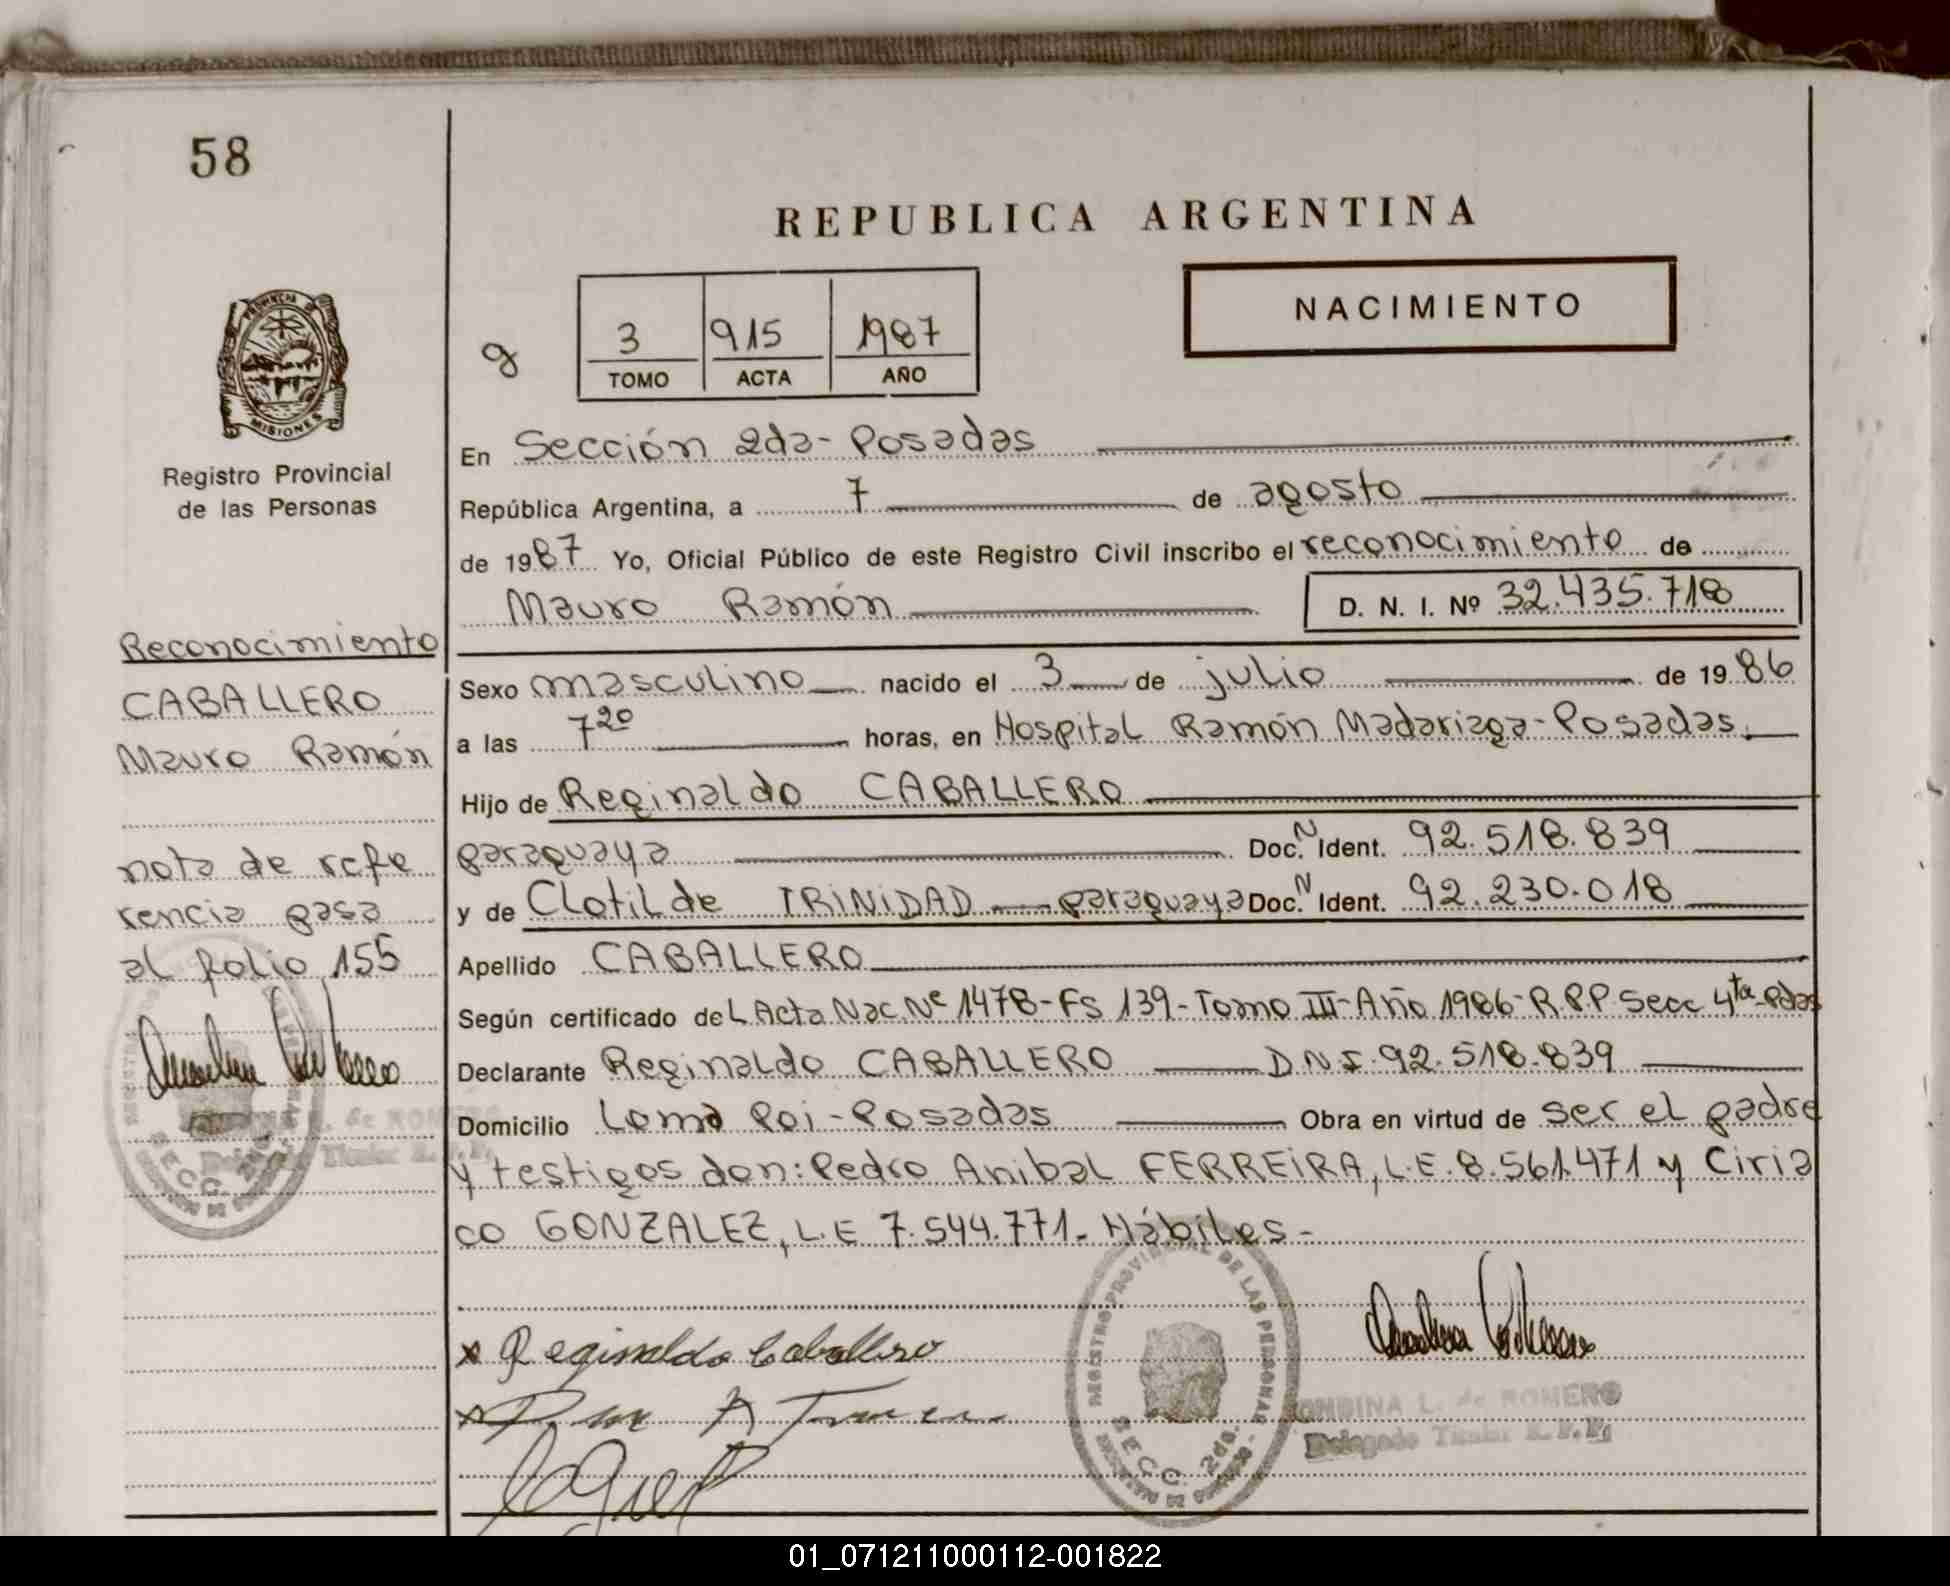 58
REPUBLICA ARGENTINA
NACIMIENTO
3 915 1987
TOMO ACTA AÑO
PROVINCIA DE
MISIONES
Registro Provincial
de las Personas
En Sección 2da - Posadas
República Argentina, a 7 de agosto
de 1987 Yo, Oficial Público de este Registro Civil inscribo el reconocimiento de
Mauro Ramón D. N. I. Nº 32.435.718
Reconocimiento
CABALLERO
Mauro Ramón
nota de refe
rencia pasa
al folio 155
Sexo masculino nacido el 3 de julio de 1986
a las 7 20 horas, en Hospital Ramón Madariaga - Posadas.
Hijo de Reginaldo CABALLERO
paraguaya Doc. N Ident. 92.518.839
y de Clotilde TRINIDAD paraguaya Doc. N Ident. 92.230.018
Apellido CABALLERO
Según certificado del Acta Nac. Nº 1478 - Fs 139 - Tomo III - Año 1986 - R.P.P. Secc 4ta - Pdas
Declarante Reginaldo CABALLERO D.N.I. 92.518.839
Domicilio Loma Poi - Posadas Obra en virtud de ser el padre
y testigos don: Pedro Anibal FERREIRA, L.E. 8.561.471 y Ciria
co GONZALEZ, L.E 7.544.771. Hábiles -
x Reginaldo Caballero
REGISTRO PROVINCIAL DE LAS PERSONAS
SECC. 2da.
ONDINA L. de ROMERO
Delegado Titular R.P.P.
L. de ROMERO
Delegado Titular R.P.P.
01_071211000112-001822